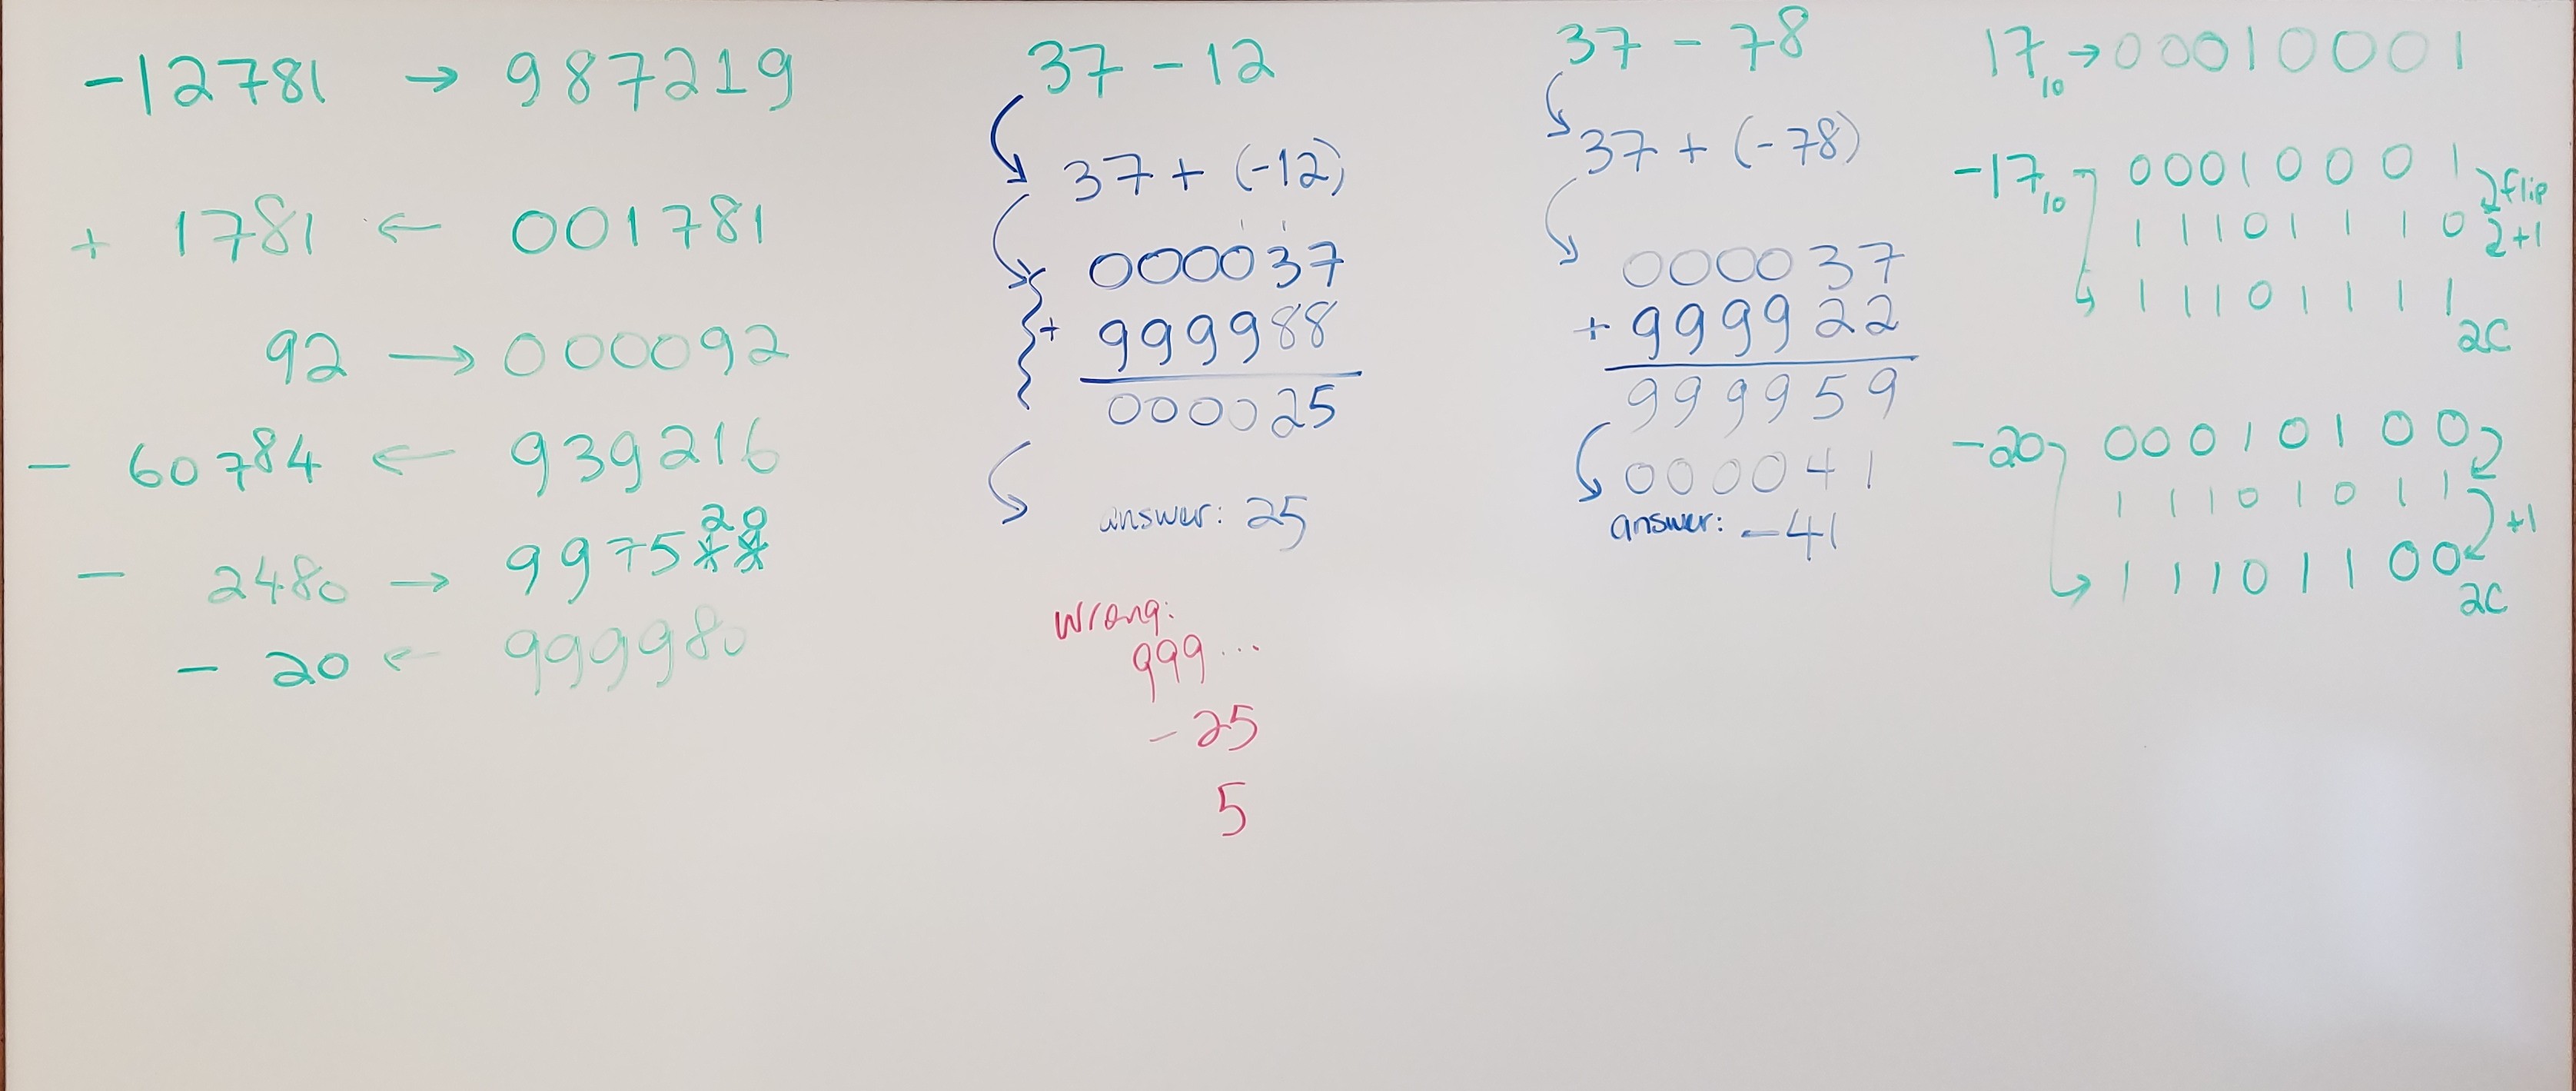 -12781 → 987219
+ 1781 ← 001781
92 → 000092
- 60784 ← 939216
20
- 2480 → 9975
- 20 ← 999980
37 - 12
37 + (-12)
1 1
000037
+ 999988
000025
answer: 25
wrong:
999...
-25
5
37 - 78
37 + (-78)
000037
+ 999922
999959
000041
answer: -41
17₁₀ → 00010001
-17₁₀ 00010001 flip
11101110 +1
11101111
2C
-20 00010100
11101011 +1
11101100
2C